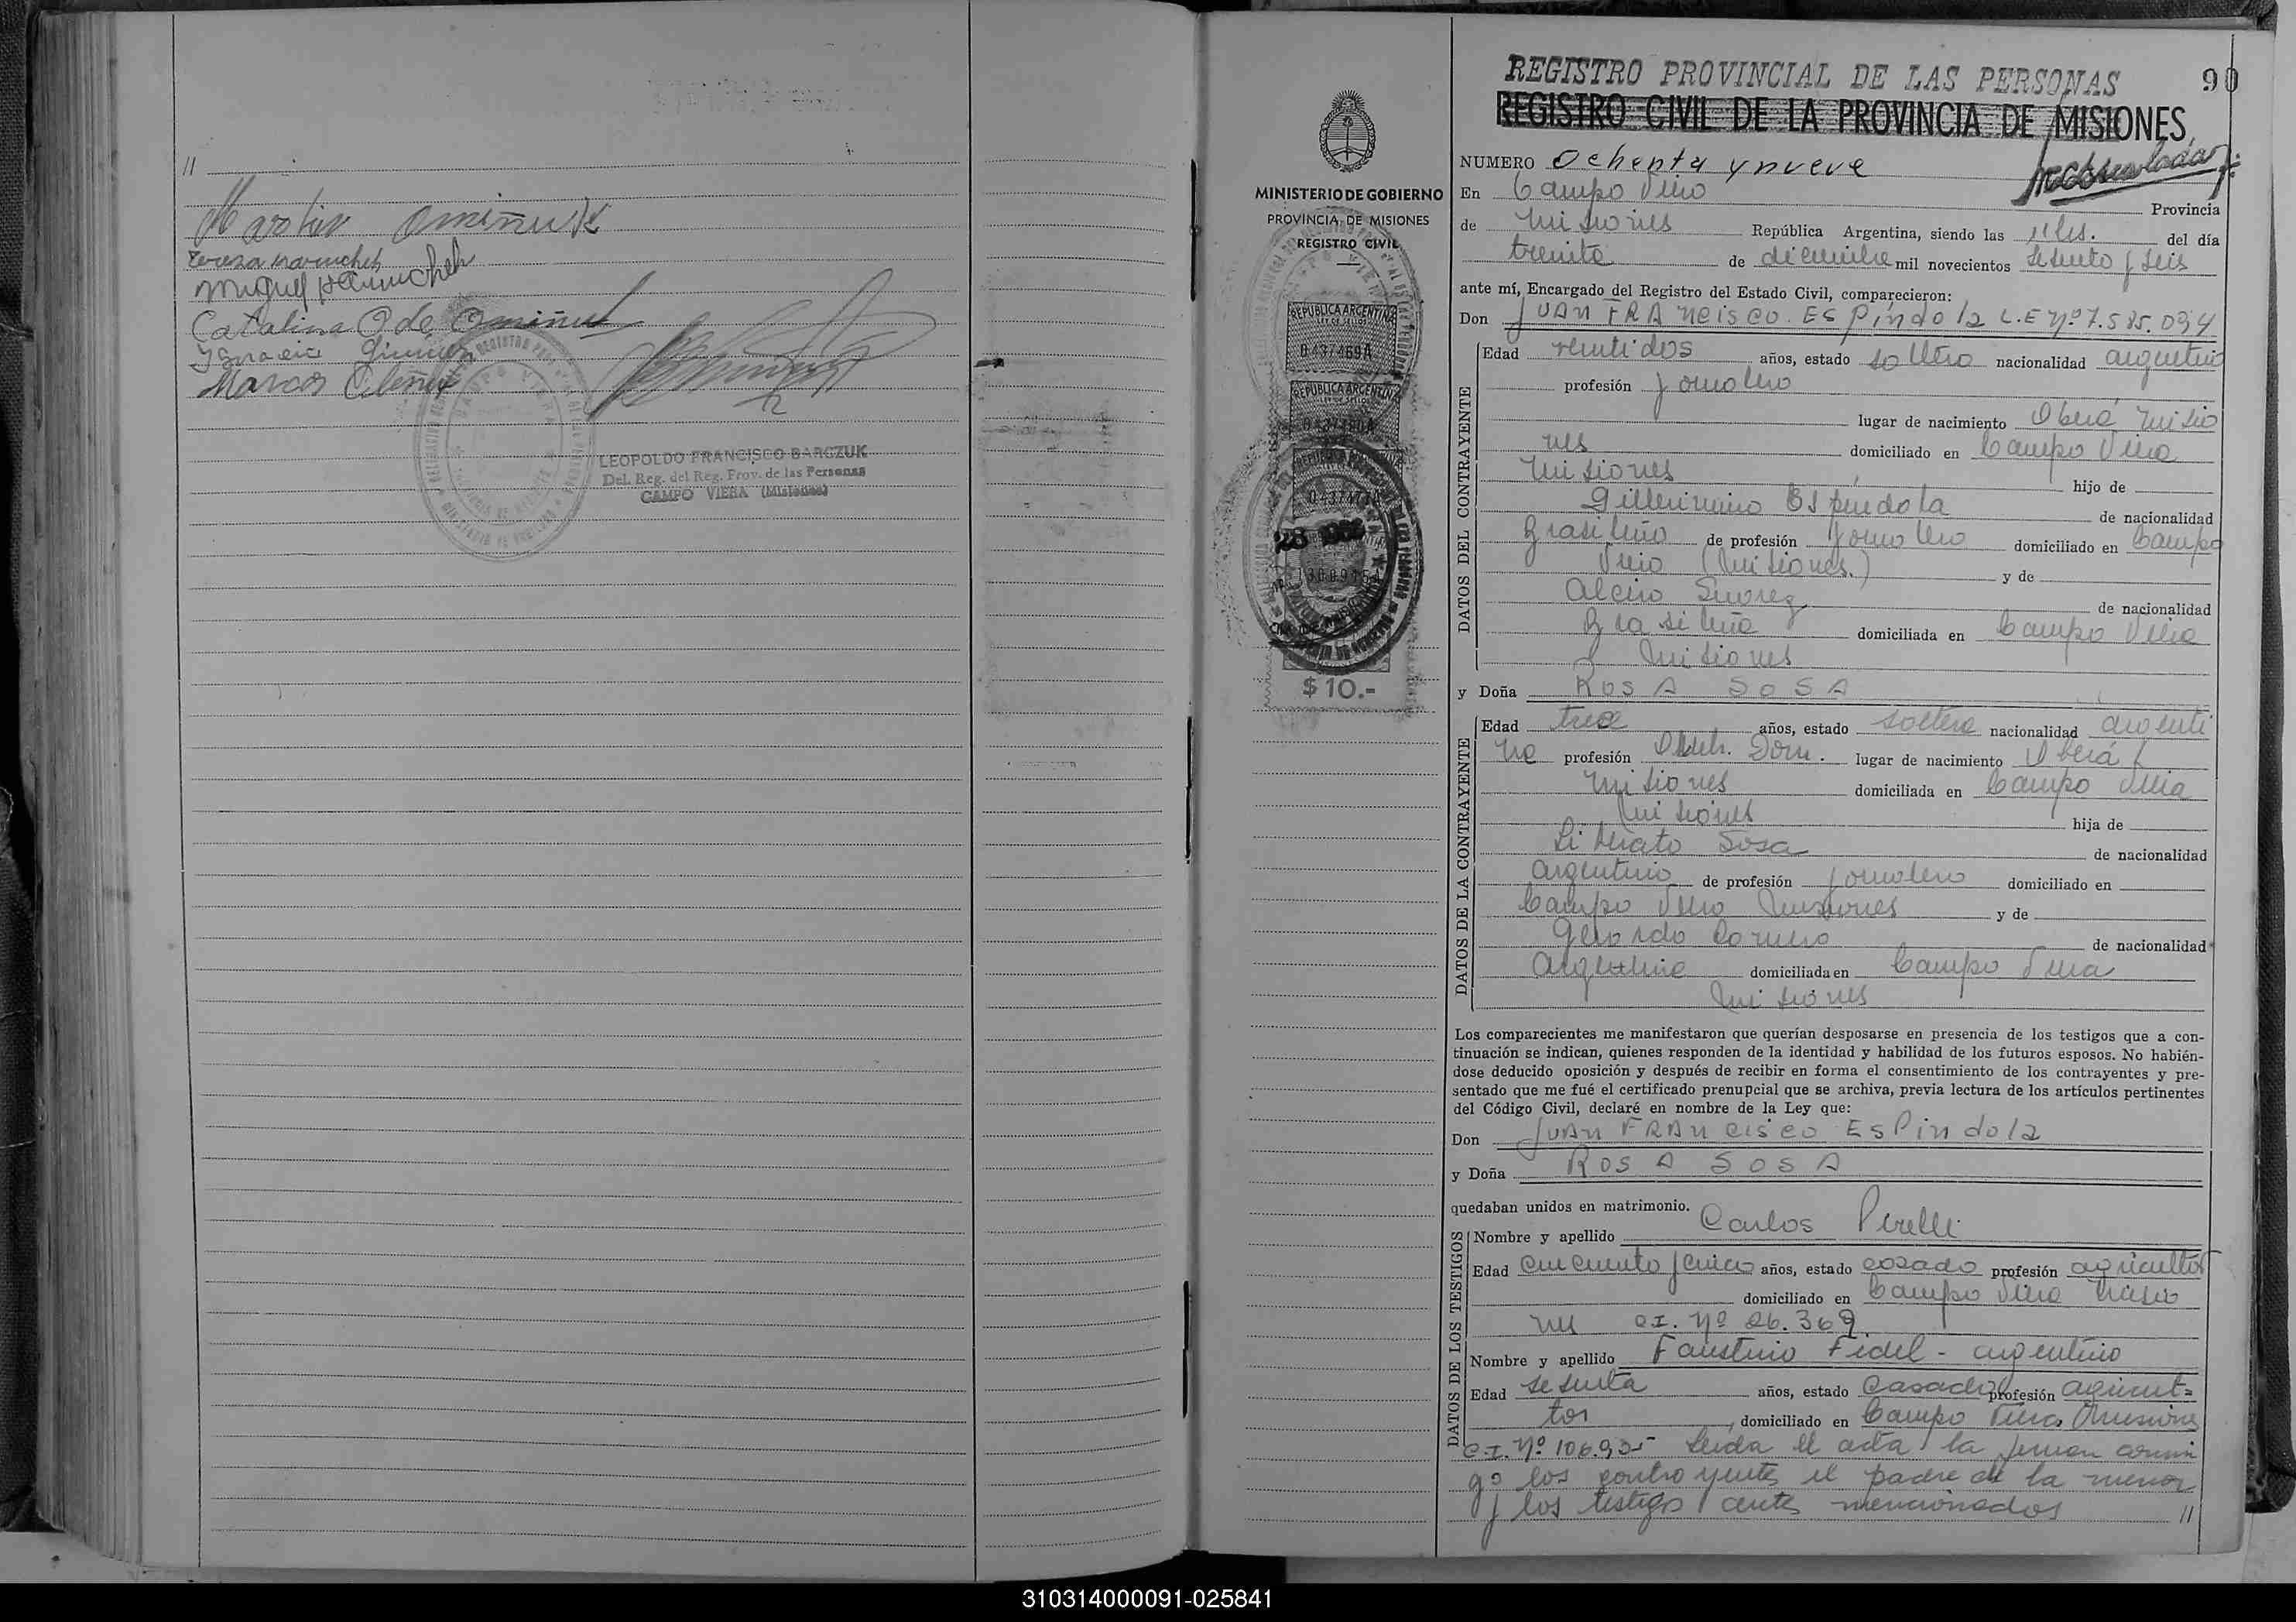 //
Martin Omiñuk
Teresa Haruncheh
Miguel Haruncheh
Catalina O de Omiñuk
Ignacio
Marcos
LEOPOLDO FRANCISCO BARCZUK
Del. Reg. del Reg. Prov. de las Personas
CAMPO VIERA (Misiones)
MINISTERIO DE GOBIERNO
PROVINCIA DE MISIONES
REGISTRO CIVIL
REPUBLICA ARGENTINA
0437469A
REPUBLICA ARGENTINA
28 1966
$ 10.-
REGISTRO PROVINCIAL DE LAS PERSONAS
90
REGISTRO CIVIL DE LA PROVINCIA DE MISIONES
NUMERO Ochenta y nueve
En Campo Viera Provincia
de Misiones República Argentina, siendo las 11 hs. del día
treinta de diciembre mil novecientos sesenta y seis
ante mí, Encargado del Registro del Estado Civil, comparecieron:
Don JUAN FRANCISCO ESPINDOLA L.E Nº 7.585.034
DATOS DEL CONTRAYENTE
Edad veintidos años, estado soltero nacionalidad argentino
profesión jornalero
lugar de nacimiento Oberá Misio
nes domiciliado en Campo Viera
Misiones hijo de
Guillermino Espindola de nacionalidad
Brasileño de profesión Jornalero domiciliado en Campo
Viera (Misiones.) y de
Alcira Suarez de nacionalidad
Brasileña domiciliada en Campo Viera
Misiones
y Doña ROSA SOSA
DATOS DE LA CONTRAYENTE
Edad trece años, estado soltera nacionalidad argenti
na profesión Queh. Dom. lugar de nacimiento Oberá
Misiones domiciliada en Campo Viera
Misiones hija de
Liberato Sosa de nacionalidad
argentino de profesión jornalero domiciliado en
Campo Viera Misiones y de
Gerarda Romero de nacionalidad
Argentina domiciliada en Campo Viera
Misiones
Los comparecientes me manifestaron que querían desposarse en presencia de los testigos que a con-
tinuación se indican, quienes responden de la identidad y habilidad de los futuros esposos. No habién-
dose deducido oposición y después de recibir en forma el consentimiento de los contrayentes y pre-
sentado que me fué el certificado prenupcial que se archiva, previa lectura de los artículos pertinentes
del Código Civil, declaré en nombre de la Ley que:
Don JUAN FRANCISCO ESPINDOLA
y Doña ROSA SOSA
quedaban unidos en matrimonio.
DATOS DE LOS TESTIGOS
Nombre y apellido Carlos Perelli
Edad cincuenta y cinco años, estado casado profesión agricultor
domiciliado en Campo Viera Misio
nes C.I. Nº 26.369
Nombre y apellido Faustino Fidel - argentino
Edad sesenta años, estado Casado profesión agricul=
tor domiciliado en Campo Viera Misiones
C.I. Nº 106.935 Leída el acta la firman conmi
go los contrayentes el padre de la menor
y los testigos antes mencionados //
310314000091-025841